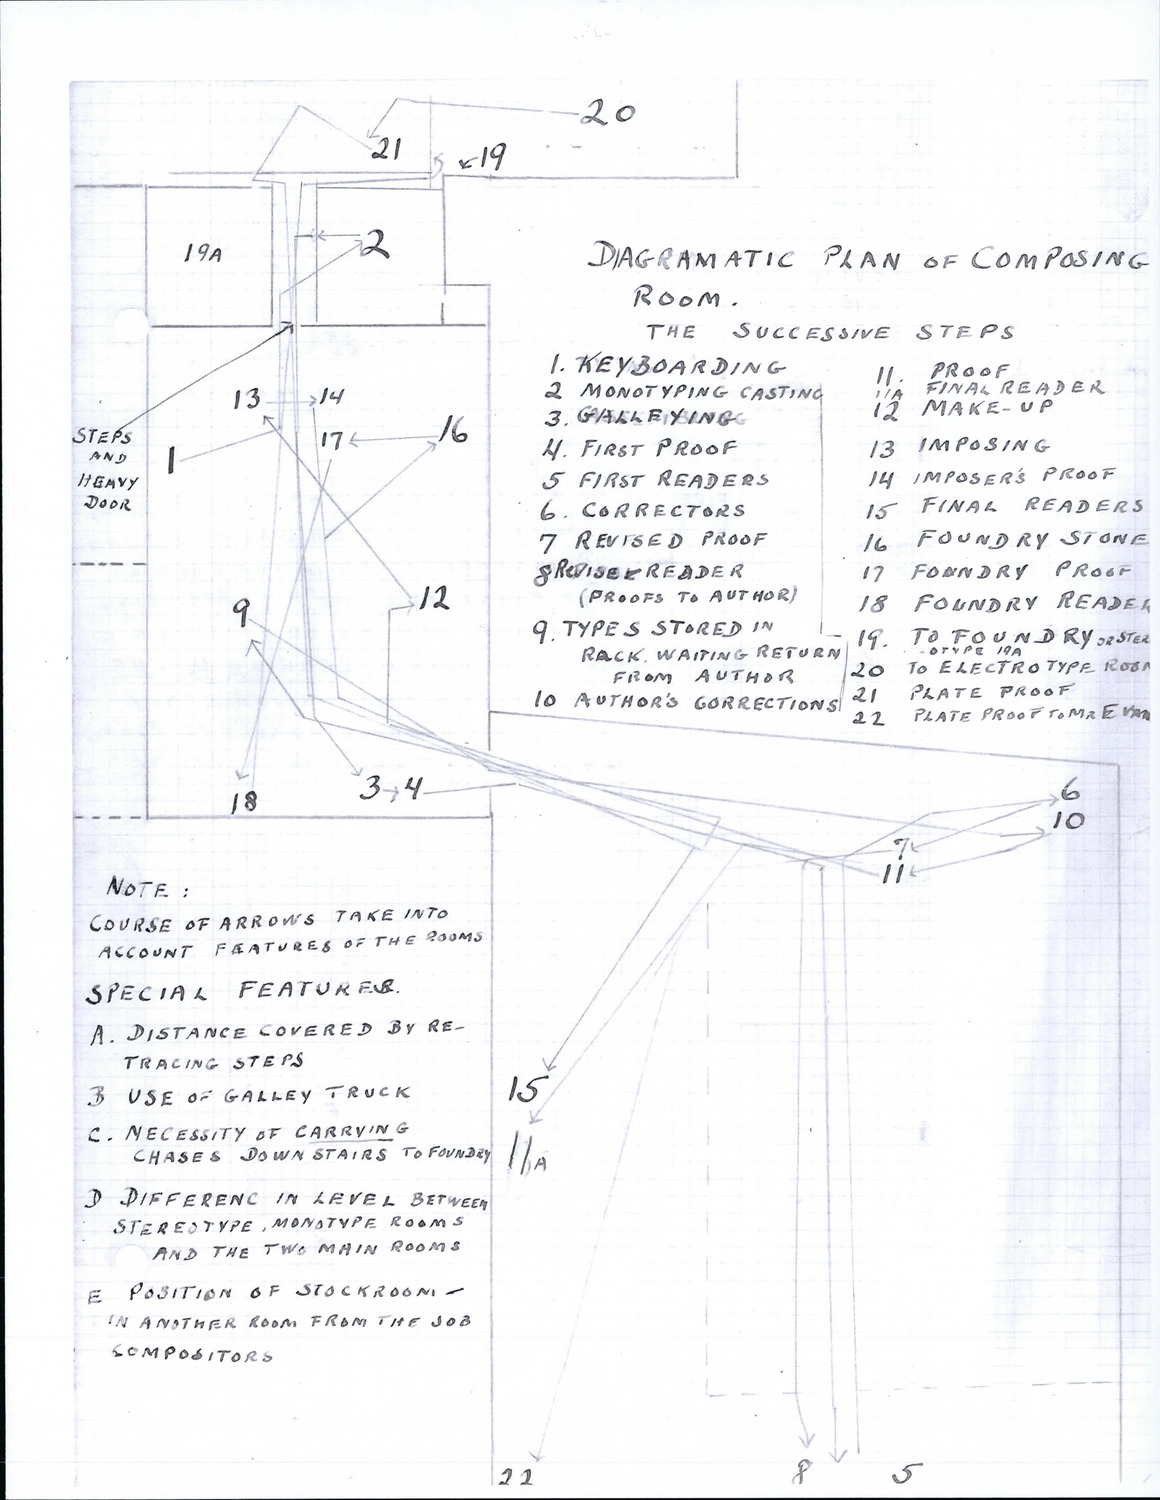 20
21
19
19A
2
DIAGRAMATIC PLAN OF COMPOSING
ROOM.
THE SUCCESSIVE STEPS
1. KEYBOARDING
2 MONOTYPING CASTING
3. GALLEYING
4. FIRST PROOF
5 FIRST READERS
6. CORRECTORS
7 REVISED PROOF
8 REVISE READER
(PROOFS TO AUTHOR)
9. TYPES STORED IN
RACK. WAITING RETURN
FROM AUTHOR
10 AUTHOR'S CORRECTIONS
11. PROOF
11A FINAL READER
12 MAKE-UP
13 IMPOSING
14 IMPOSER'S PROOF
15 FINAL READERS
16 FOUNDRY STONE
17 FOUNDRY PROOF
18 FOUNDRY READER
19. TO FOUNDRY OR STER
-OTYPE 19A
20 TO ELECTROTYPE ROOM
21 PLATE PROOF
22 PLATE PROOF TO MR EVAN
13
14
17
16
1
STEPS
AND
HEAVY
DOOR
9
12
18
3
4
6
10
7
11
NOTE:
COURSE OF ARROWS TAKE INTO
ACCOUNT FEATURES OF THE ROOMS
SPECIAL FEATURES.
A. DISTANCE COVERED BY RE-
TRACING STEPS
B USE OF GALLEY TRUCK
C. NECESSITY OF CARRYING
CHASES DOWN STAIRS TO FOUNDRY
D DIFFERENC IN LEVEL BETWEEN
STEREOTYPE, MONOTYPE ROOMS
AND THE TWO MAIN ROOMS
E POSITION OF STOCKROOM -
IN ANOTHER ROOM FROM THE JOB
COMPOSITORS
15
11A
22
8
5